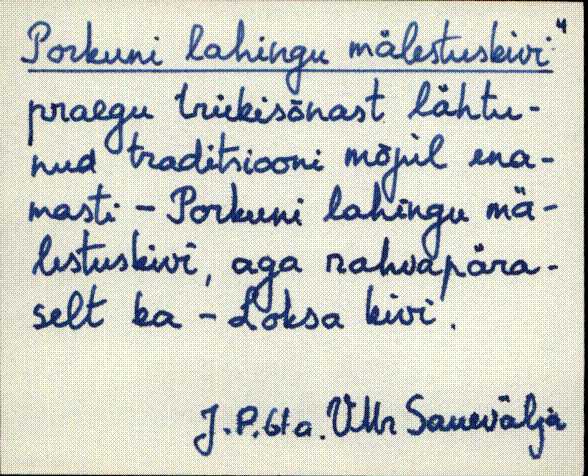 Porkuni lahingu mälestuskivi "
praegu trükisõnast lähtu-
nud traditsiooni mõjul ena-
masti - Porkuni lahingu mä-
lestuskivi, aga rahvapära-
selt ka - Loksa kivi.
J. P. 61 a. VMr Sauevälja